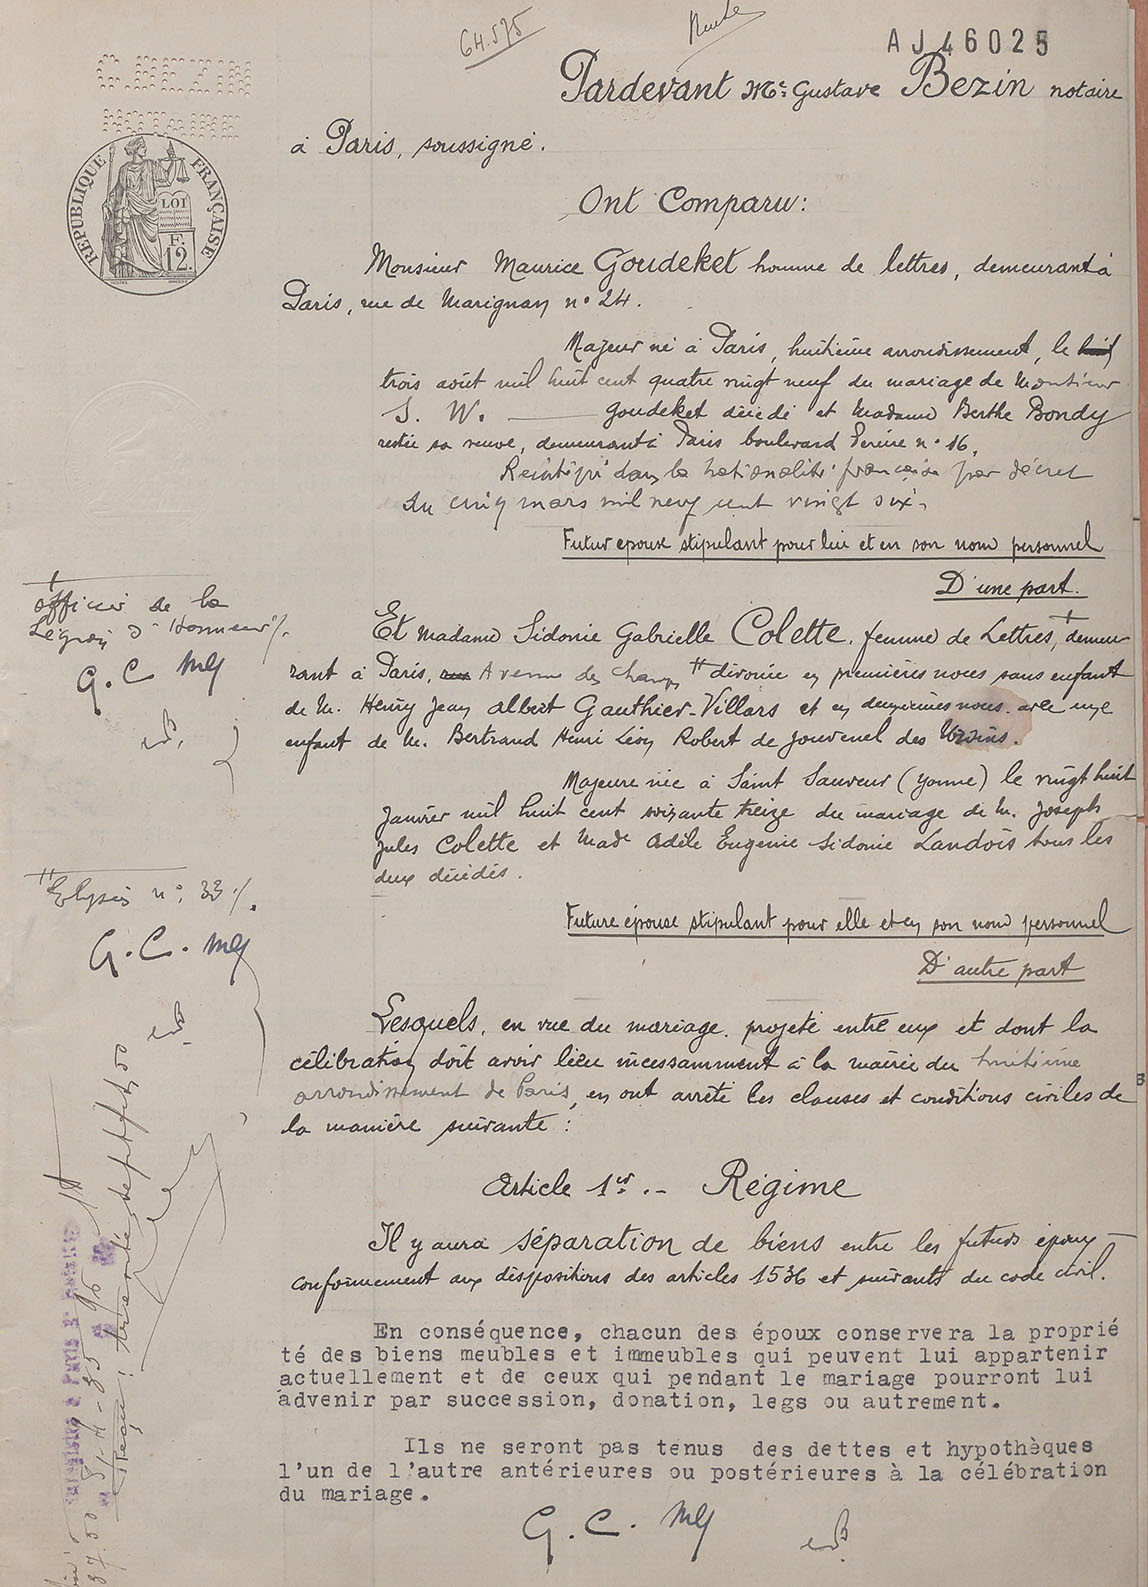 64.575
AJ 46025
BEZIN
NOTAIRE
REPUBLIQUE FRANÇAISE
LOI
F.
12.
Pardevant Me Gustave Bezin notaire
à Paris, soussigné.
Ont Comparu:
Monsieur Maurice Goudeket homme de lettres, demeurant à
Paris, rue de Marignan n° 24.
Majeur né à Paris, huitième arrondissement, le
trois août mil huit cent quatre vingt neuf du mariage de Monsieur
S. W. Goudeket décédé et Madame Berthe Bondy
restée sa veuve, demeurant à Paris boulevard Pereire n° 16.
Réintégré dans la nationalité française par décret
du cinq mars mil neuf cent vingt six.
Futur epoux stipulant pour lui et en son nom personnel
D'une part.
+
officier de la
Légion d'Honneur/.
G. C MG
Et Madame Sidonie Gabrielle Colette, femme de Lettres, + demeu
rant à Paris, rue Avenue des Champs # divorcée en premières noces sans enfant
de M. Henry Jean Albert Gauthier-Villars et en deuxièmes noces avec une
enfant de M. Bertrand Henri Léon Robert de Jouvenel des Ursins.
Majeure née à Saint Sauveur (Yonne) le vingt huit
Janvier mil huit cent soixante treize du mariage de M. Joseph
Jules Colette et Made Adèle Eugenie Sidonie Landois tous les
deux décédés.
# Elysées n°: 33 /.
G. C. MG
Future épouse stipulant pour elle et en son nom personnel
D'autre part
Lesquels, en vue du mariage projeté entre eux et dont la
célébration doit avoir lieu incessamment à la mairie du huitième
arrondissement de Paris, en ont arrêté les clauses et conditions civiles de
la manière suivante :
Article 1er.- Régime
Il y aura séparation de biens entre les futurs époux
conformément aux dispositions des articles 1536 et suivants du code civil.
En conséquence, chacun des époux conservera la proprié
té des biens meubles et immeubles qui peuvent lui appartenir
actuellement et de ceux qui pendant le mariage pourront lui
advenir par succession, donation, legs ou autrement.
Ils ne seront pas tenus des dettes et hypothèques
l'un de l'autre antérieures ou postérieures à la célébration
du mariage.
G. C. MG